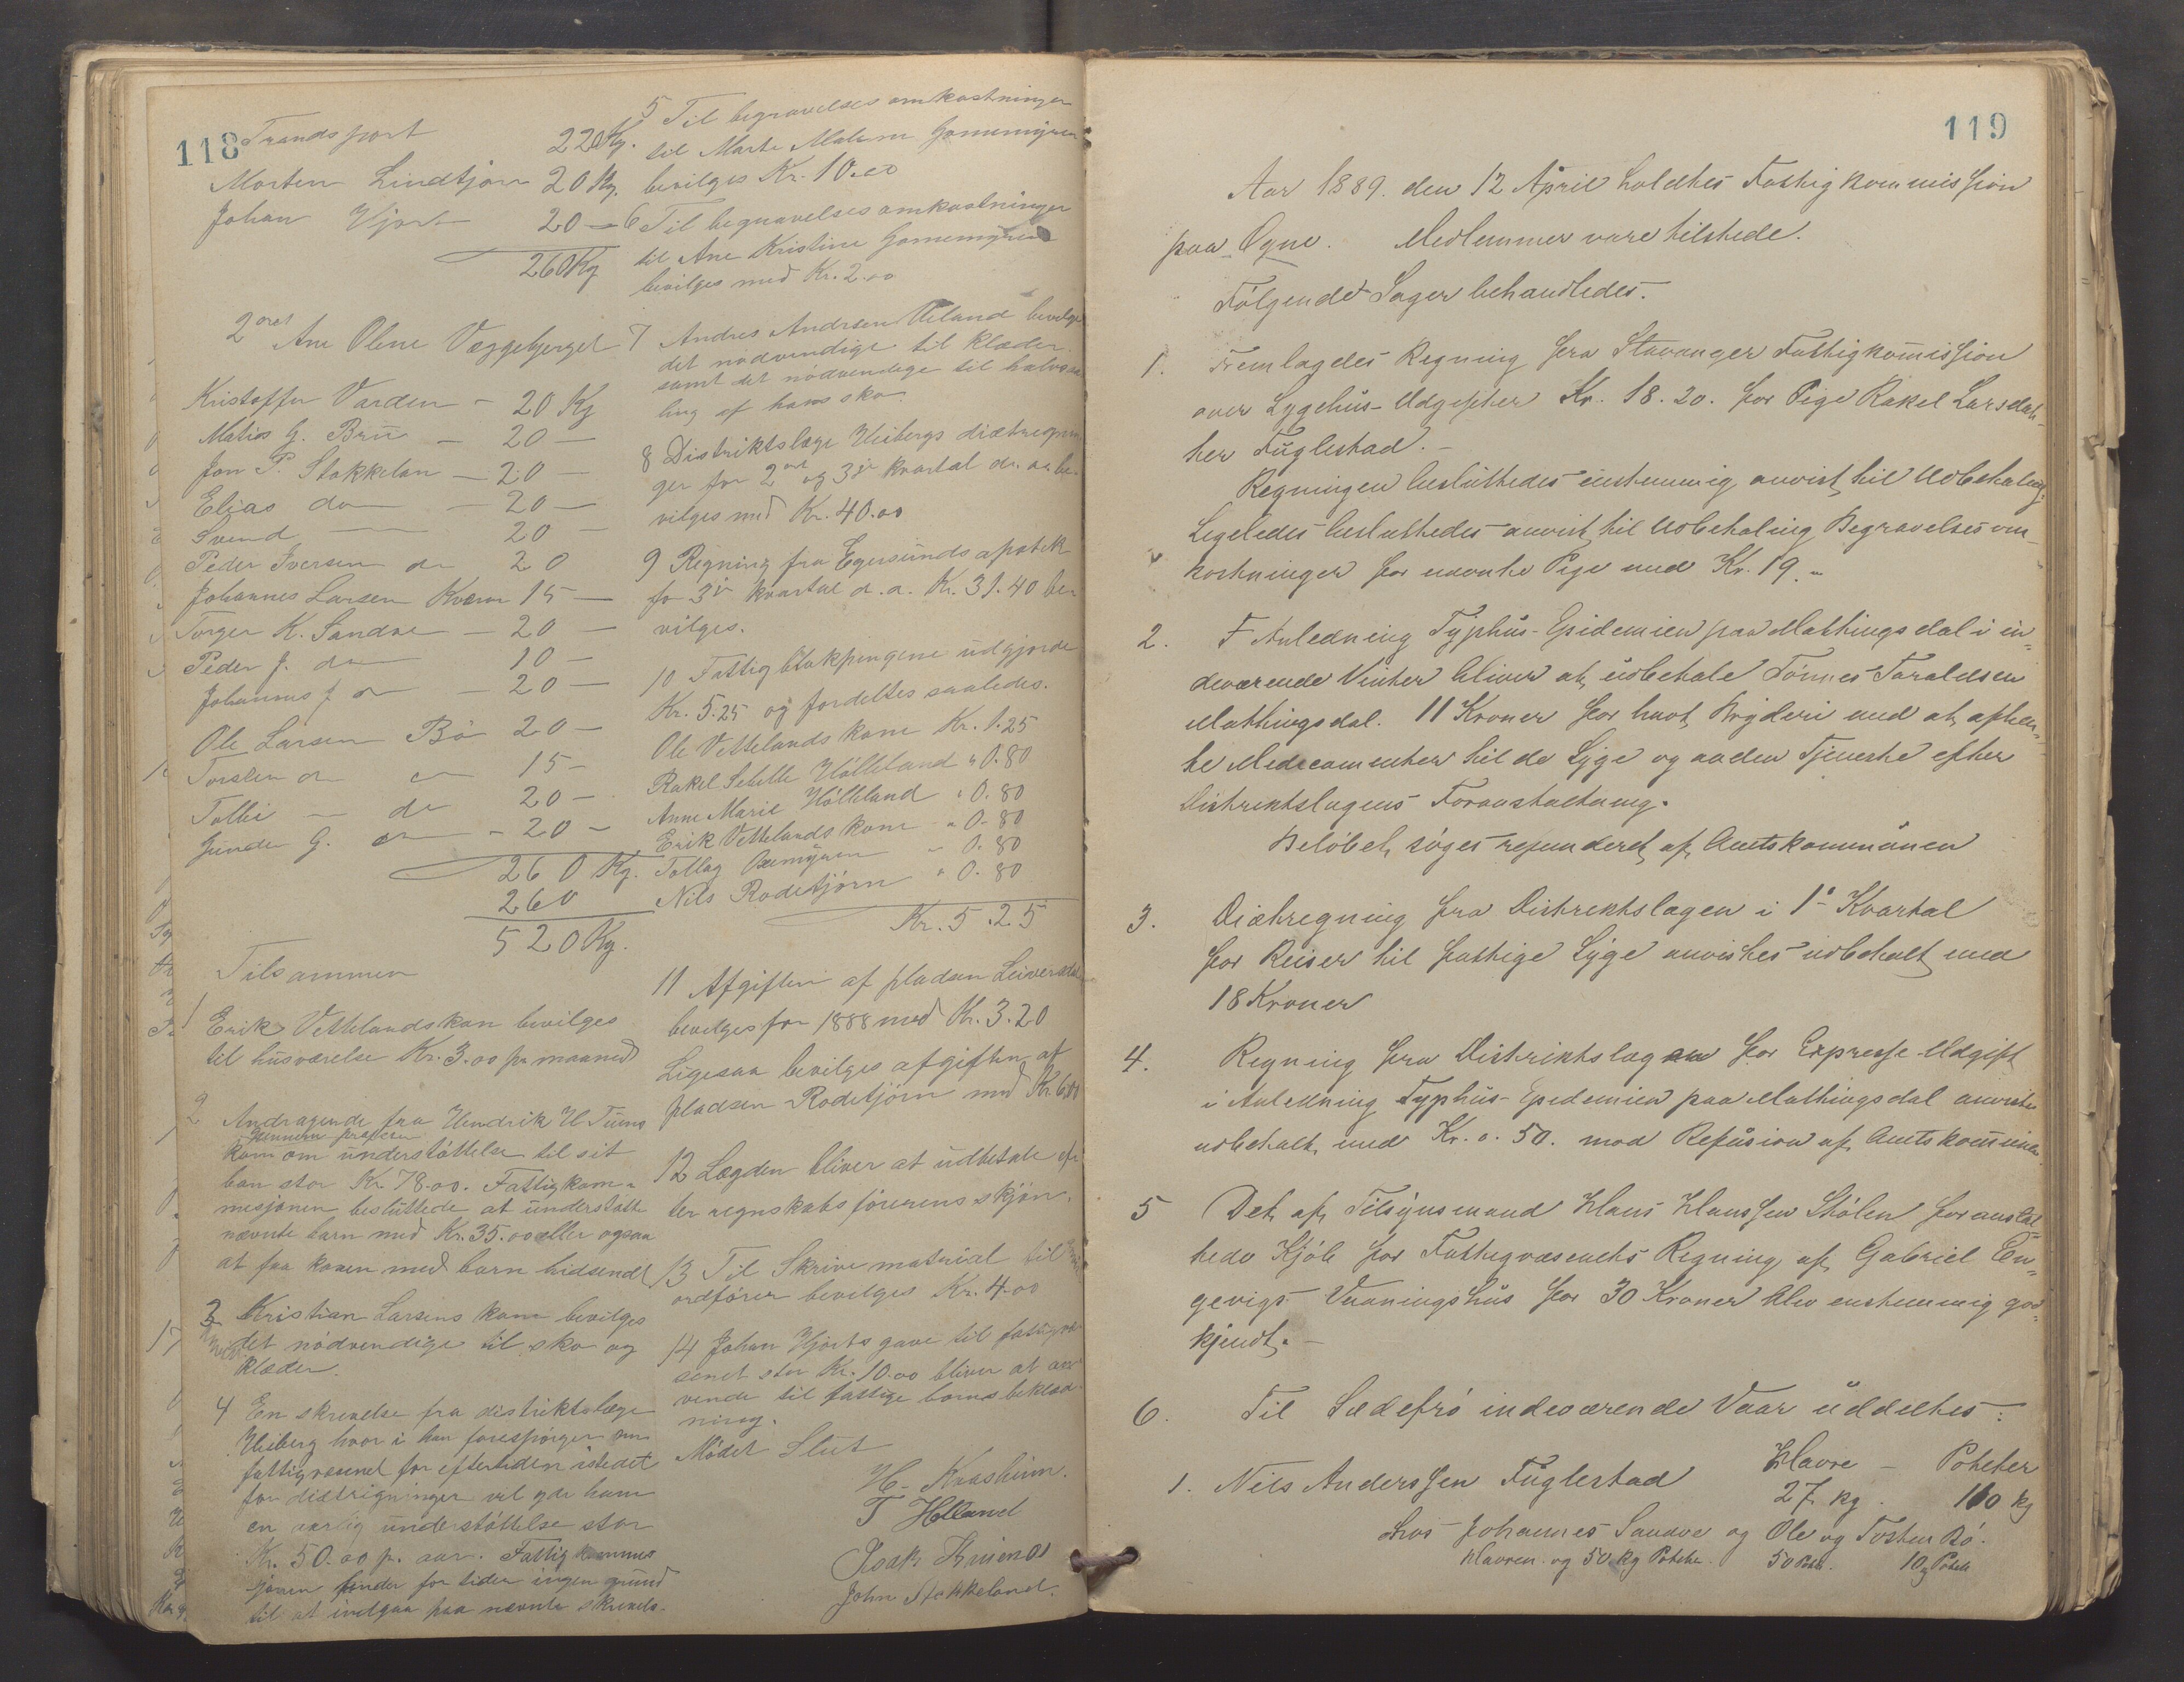 118
Transport 220 Kg.
Morten Lindtjørn 20 Kg.
Johan Hjort 20 —
260 Kg
2det Ane Olene Væggebjerget
Kristoffer Varden — 20 Kg
Matias G. Bru — 20 —
Jon P. Stokkelan — 20 —
Elias do — 20 —
Svend — 20 —
Peder Iversen do 20
Johannes Larsen Kværn 15 —
Torger K. Sandve — 20 —
Peder J. do 10 —
Johannes J. do — 20 —
Ole Larsen Bö 20 —
Torsten do 15 —
Tollei — do 20 —
Gunder G. do — 20 —
260 Kg.
260
520 Kg.
Tilsammen
1 Erik Vettelandskon bevilges
til husværelse Kr. 3.00 pr maaned
2 Andragende fra Hendrik H. Tuens
kone om understøttelse til sit
barn stor Kr. 78.00. Fattigkom-
misjonen besluttede at understøtte
nævnte barn med Kr. 35.00 eller ogsaa
at faa konen med barn hidsendt
3 Kristian Larsens kone bevilges
det nödvendige til sko og
klæder.
4 En skrivelse fra distriktslæge
Heiberg hvor i han forespörger om
fattigvæsenet for eftertiden istedet
for diætrigninger vil yde ham
en aarlig understöttelse stor
Kr. 50.00 p. aar. Fattigkommis
jonen finder for tiden ingen grund
til at indgaa paa nævnte skrivels-
5 Til begravelses omkostninger
til Marte Malene Gommemyren
bevilges Kr. 10.00
6 Til begravelses omkostninger
til Ane Kristine Gomemyren
bevilges med Kr. 2.00
7 Andres Andrsen Ueland bevilges
det nødvendige til klæder
samt det nödvendige til halvsaa
ling af hans sko.
8 Distriktslæge Heibergs diætregnin
ger for 2det og 3je kvartal d. a. be-
vilges med Kr. 40.00
9 Regning fra Egersunds apotek
for 3je kvartal d. a. Kr. 31.40 be-
vilges.
10 Fattigblokpengene udgjorde
Kr. 5.25 og fordeltes saaledes.
Ole Vettelands kone Kr. 1.25
Rakel Sebille Hölleland " 0.80
Anne Marie Hölleland " 0.80
Erik Vettelands kone " 0.80
Tollag " 0.80
Nils Rodetjörn " 0.80
Kr. 5.25
11 Afgiften af pladsen
bevilges for 1888 med Kr. 3.20
Ligesaa bevilges afgiften af
pladsen Rodetjörn med Kr. 6.00
12 Lægden bliver at udbetale ef-
ter regnskabsförerens skjön.
13 Til Skrivematerial til
ordförer bevilges Kr. 4.00
14 Johan Hjorts gave til fattigvæ
senet stor Kr. 10.00 bliver at an-
vende til fattige borns beklæd-
ning.
Mödet Slut
H. Kvasheim.
T Holland
Isak Bruenes
John Stokkeland.
119
Aar 1889. den 12 April holdtes Fattigkommission
paa Ogne. Medlemmer vare tilstede.
Følgende Sager behandledes.
1. Fremlagdes Regning fra Stavanger Fattigkommission
over Sygehus-Udgifter Kr. 18.20. for Pige Rakel Larsdat-
ter Fuglestad. —
Regningen besluttedes eenstemmig anvist til Udbetaling.
Ligeledes besluttedes anvist til Udbetaling Begravelsesom-
kostninger for nævnte Pige med Kr. 19.–
2. I Anledning Typhus-Epidemien paa Mattingsdal i in-
deværende Vinter bliver at udbetale Tønnes Taraldsen
Mattingsdal. 11 Kroner for havt Bryderi med at afhen-
te Medecamenter til de Syge og anden Tjeneste efter
Distrektslægens Foranstaltning.
Beløbet søges refunderet af Amtskommunen
3. Diætregning fra Distrektslægen i 1ste Kvartal
for Reiser til fattige Syge anvistes udbetalt med
18 Kroner
4. Regning fra Distriktslægen for Expresse-Udgift
i Anledning Typhus-Epedemien paa Mattingsdal anvistes
udbetalt med Kr. 0.50. mod Refusion af Amtskommunen.
5 Det af Tilsynsmand Klaus Klaussen Stølen foranstal-
tede Kjøb for Fattigvæsenets Regning af Gabriel En-
gevigs Vaaningshus for 30 Kroner blev enstemmig god-
kjendt. —
6. Til Sædefrö indeværende Vaar uddeltes:
Havre — Poteter
1. Nils Anderssen Fuglestad 27 kg. 160 kg
hos Johannes Sandve og Ole og Tosten Bö.
Havren og 50 kg Poteter. 50 Potet. 10 Potet